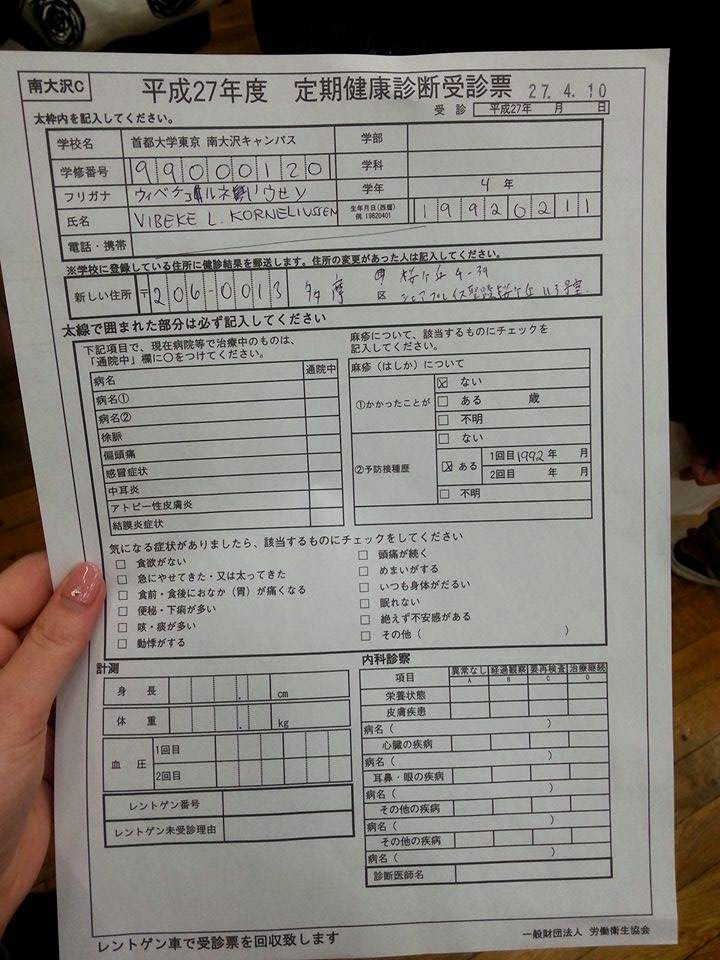 南大沢C
平成27年度 定期健康診断受診票 27. 4. 10
受 診 平成27年 月 日
太枠内を記入してください。
学校名 首都大学東京 南大沢キャンパス 学部
学修番号 99000120 学科
フリガナ 学年 4 年
氏名 VIBEKE L. KORNELIUSSEN 生年月日(西暦) 例. 19820401 19920211
電話・携帯
※学校に登録している住所に健診結果を郵送します。住所の変更があった人は記入してください。
新しい住所 〒206-0013 多摩 市 桜ヶ丘 4-39
区
太線で囲まれた部分は必ず記入してください
下記項目で、現在病院等で治療中のものは、
「通院中」欄に〇をつけてください。
病名 通院中
病名①
病名②
徐脈
偏頭痛
感冒症状
中耳炎
アトピー性皮膚炎
結膜炎症状
麻疹について、該当するものにチェックを
記入してください。
麻疹(はしか)について
①かかったことが
☒ ない
☐ ある 歳
☐ 不明
②予防接種歴
☐ ない
☒ ある 1回目 1992 年 月
2回目 年 月
☐ 不明
気になる症状がありましたら、該当するものにチェックをしてください
☐ 食欲がない
☐ 急にやせてきた・又は太ってきた
☐ 食前・食後におなか(胃)が痛くなる
☐ 便秘・下痢が多い
☐ 咳・痰が多い
☐ 動悸がする
☐ 頭痛が続く
☐ めまいがする
☐ いつも身体がだるい
☐ 眠れない
☐ 絶えず不安感がある
☐ その他( )
計測
身 長 . cm
体 重 . kg
血 圧 1回目
2回目
レントゲン番号
レントゲン未受診理由
内科診察
項目 異常なし A 経過観察 B 要再検査 C 治療継続 D
栄養状態
皮膚疾患
病名( )
心臓の疾病
病名( )
耳鼻・眼の疾病
病名( )
その他の疾病
病名( )
その他の疾病
病名( )
診断医師名
レントゲン車で受診票を回収致します
一般財団法人 労働衛生協会